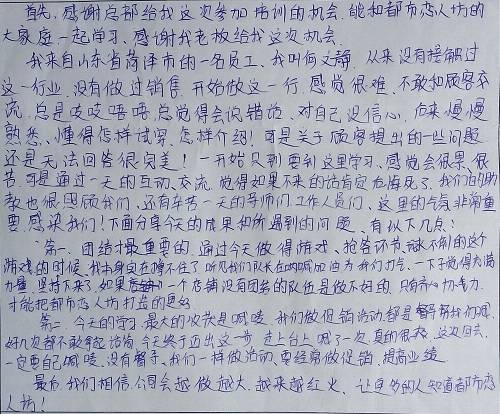 首先，感谢总部给我这次参加培训的机会，能和都市恋人坊的
大家庭一起学习，感谢我老板给我这次机会。
我来自山东省菏泽市的一名员工，我叫何文静，从来没有接触过
这一行业，没有做过销售，开始做这一行，感觉很难，不敢和顾客交
流，总是吱吱唔唔，总觉得会说错话，对自己没信心，后来慢慢
熟悉、懂得怎样试穿，怎样介绍，可是关于顾客提出的一些问题
还是无法回答很完美！一开始只到要到这里学习，感觉会很累、很
苦，可是通过一天的互动、交流，觉得如果不来的话肯定后悔死了，我们的助
教也很照顾我们，还有辛苦一天的导师们工作人员们，这里的气氛非常重
要，感染我们！下面分享今天的成果和所遇到的问题，有以下几点：
第一，团结才最重要的，通过今天做得游戏，抢答环节，
游戏的时候，我本身实在撑不住了，听见我们队长在呐喊加油为我们打气，一下子觉得充满
力量，坚持下来了，如果一个店铺没有团务的队伍是做不好的，只有齐心协力
才能把都市恋人坊打造的更好
第二，今天的学习最大的收获是喊麦，我们做促销活动都是帮我们喊，
好几次都不敢拿起话筒，今天终于迈出这一步，走上台上喊了一次，真的很爽，这次回去，
一定要自己喊麦，没有帮手，我们一样做活动，要经常做促销，提高业绩
最后，我们相信，公司会越做越大，越来越红火，让更多的人知道都市恋
人坊！